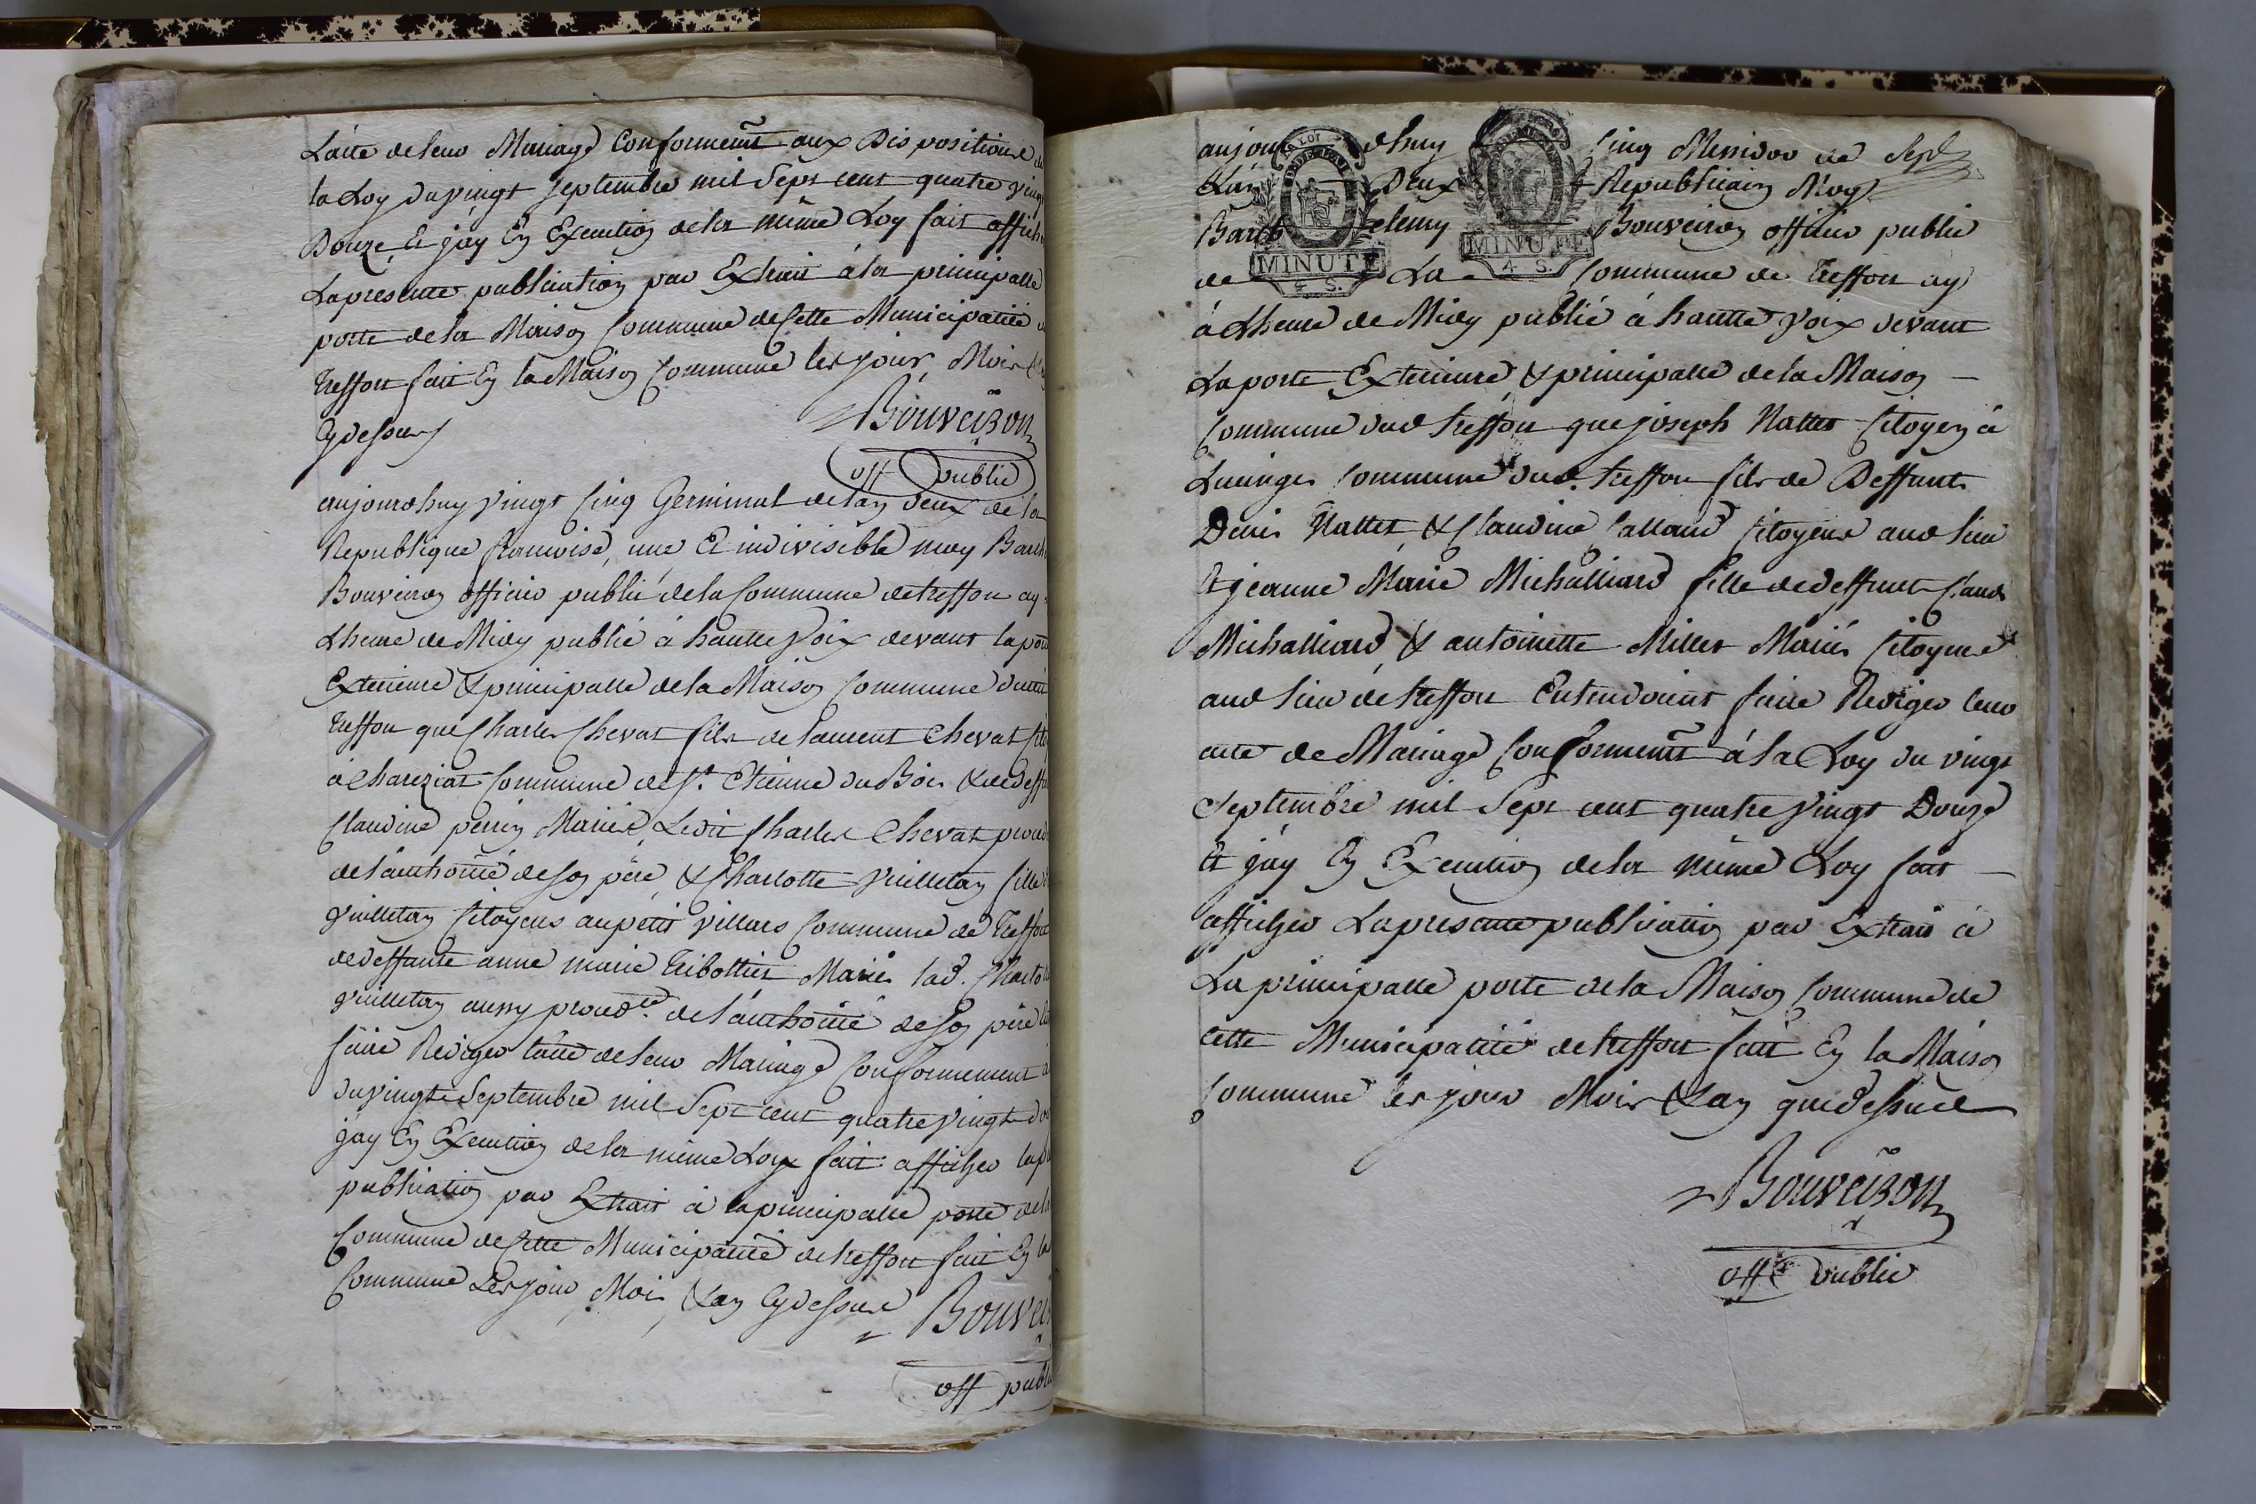 Lacte de leur Mariage Conformemt aux Dispositions de
la Loy du vingt septembre mil sept cent quatre vingt
Douze, Et jay En Execution de la même Loy fait afficher
La presente publication par Extrait à la principalle
porte de la Maison Commune de Cette Municipalité de
treffort fait En la Maison Commune les jour, Mois &
Cydessus
Bouveiron
off public
aujourdhuy vingt Cinq Germinal de lan deux de la
Republique francoise, une Et indivisible moy Barth
Bouveiron officier public de la Commune de treffort ay
Lheure de Midy publié à hautte voix devant la porte
Exterieure & principalle de la Maison Commune dudit
treffort que Charles Chevat fils de Laurent Chevat
à Chareziat Commune de St. Etienne du Bois & de deff
Claudine perrin Mariés, Ledit Charles Chevat proced
de lauthorité de son père, & Charlotte vuilleton fille
vuilleton Citoyens au petit villars Commune de Treffort
de deffunte anne marie tribollier Mariés lad. Charlo
vuilleton aussy proced. de lauthorité de son père
faire Rediger lacte de leur Mariage Conformement à
du vingt Septembre mil Sept cent quatre vingt do
jay En Execution de la même Loy fait afficher la p
publication par Extrait à la principalle porte de la
Commune de Cette Municipalité de treffort fait En la
Commune Les jour, Mois, & an Cydessus
Bouvei
off publi
aujour dhuy Cinq Messidor de
Lan Deux Republicain Moy
Barth elemy Bouveiron officier public
de La Commune de Treffort ay
à Lheure de Midy publié à hautte voix devant
La porte Exterieure & principalle de la Maison
Commune dud treffort que joseph Nallet Citoyen à
Lucinges Commune dud. treffort fils de Deffunts
Denis Nallet, & Claudine Callard Citoyens aud lieu
Et jeanne Marie Michalliard fille de deffunt Claude
Michalliard, & antoinette Millet Mariés Citoyens
aud lieu de treffort Entendoient faire Rediger leur
acte de Mariage Conformemt à la Loy du vingt
septembre mil Sept cent quatre vingt Douze
Et jay En Execution de la même Loy fait
afficher La presente publication par Extrait à
La principalle porte de la Maison Commune de
cette Municipalité de treffort fait En la Maison
Commune les jour Mois & an que dessus
Bouveiron
offer public
MINUTE
4 S.
MINUTE
4 S.